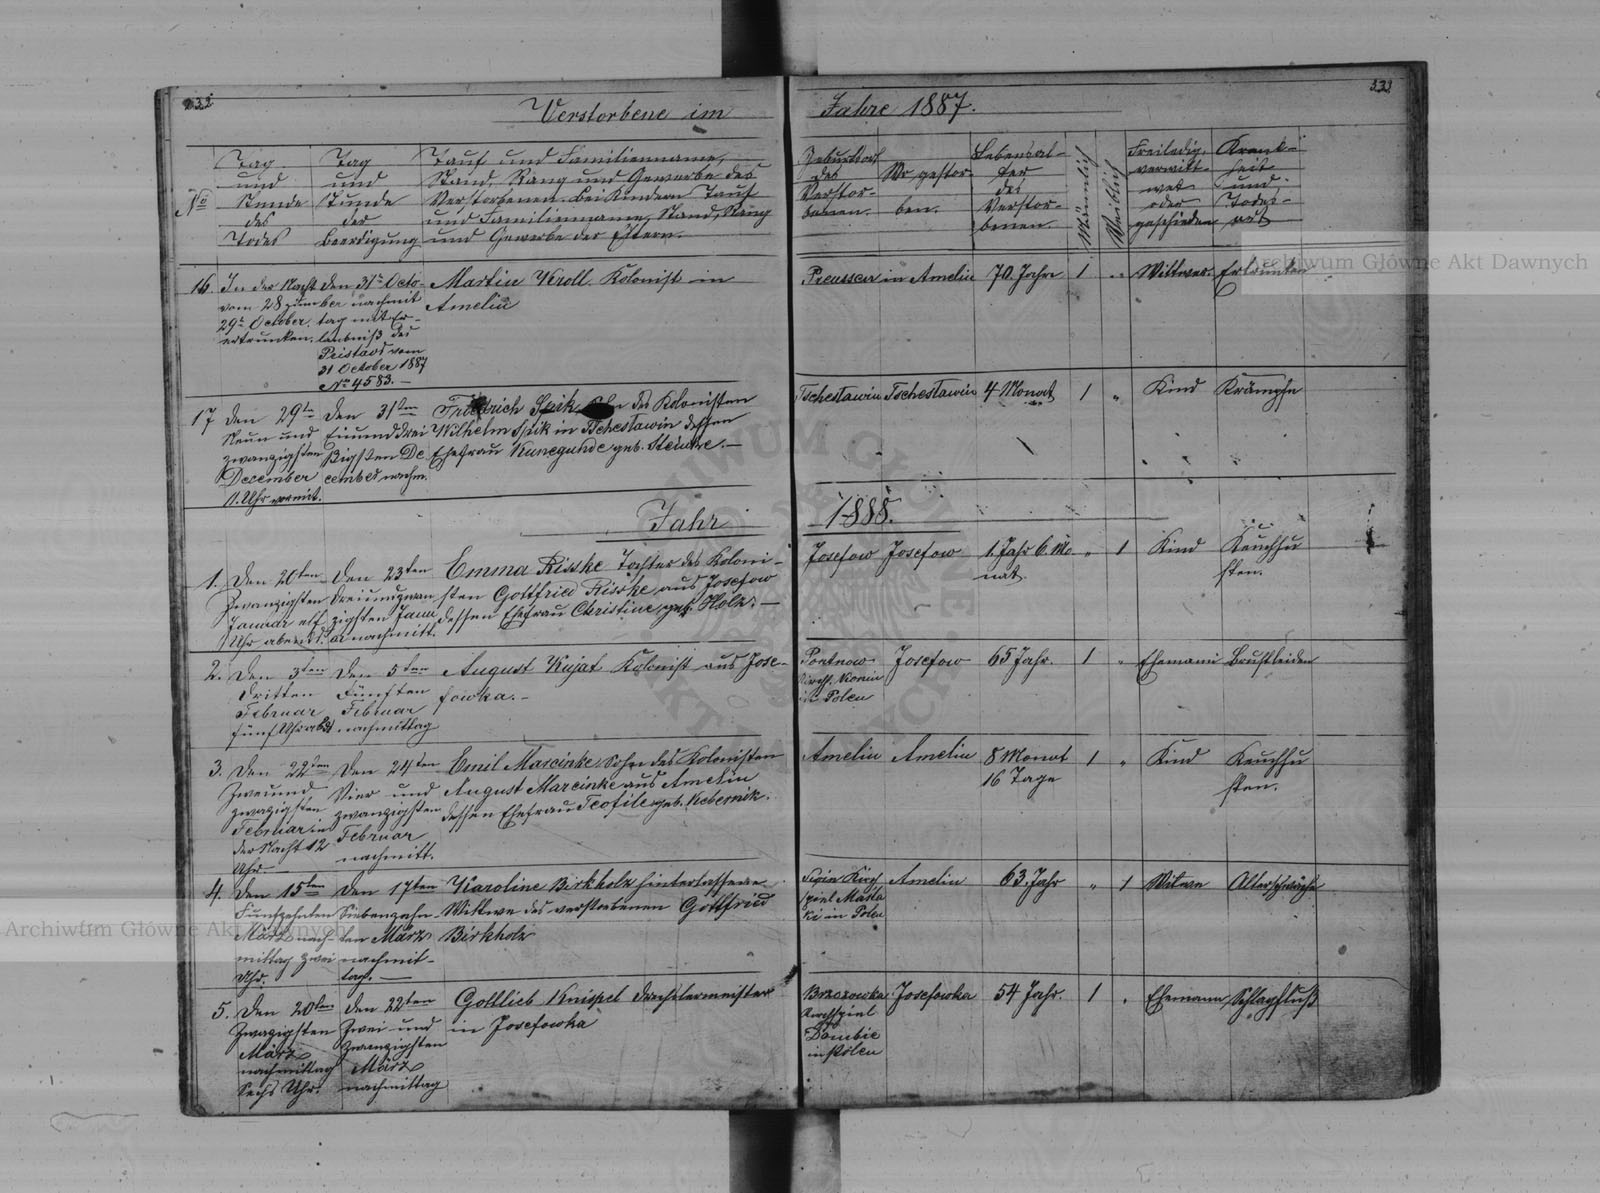 332
333
Verstorbene im Jahre 1887.
No
Tag und Stunde des Todes
Tag und Stunde der Beerdigung
Tauf und Familienname,
Stand, Rang und Gewerbe des
Verstorbenen. Bei Kindern Tauf
und Familienname, Stand, Rang
und Gewerbe der Eltern.
Geburtsort
des
Verstor-
benen.
Wo gestor-
ben.
Lebensal-
ter
des
Verstor-
benen.
Männlich
Weiblich
Freiledig,
verwitt-
wet
oder
geschieden
Krank-
heit
und
Todes-
art
16.
In der Nacht
vom 28 zum
29t October
ertrunken.
den 31t Octo-
ber nachmit
tag mit Er-
laubniß des
Pristavs vom
31 October 1887
No 4583.—
Martin Kroll, Kolonist in
Amelin
Preussen
in Amelin
70. Jahre
1
"
Wittwer.
Ertrunken
17
den 29ten
Neun und
zwanzigsten
December
11. Uhr vormit.
den 31ten
Einunddrei
ßigsten De
cember nachm.
Friedrich Spik, des Kolonisten
Wilhelm Spik in Tschestawin dessen
Ehefrau Kunegunde geb. Steinke.—
Tschestawin
Tschestawin
4 Monat
1
"
Kind
Krämpfe
Jahr 1888.
1.
Den 20ten
Zwanzigsten
Januar elf
Uhr abends.
den 23ten
Dreiundzwan
zigsten Janu
ar nachmitt.
Emma Risske Tochter des Koloni-
sten Gottfried Risske aus Josefow
dessen Ehefrau Christine geb. Holz.—
Josefow
Josefow
1. Jahr 6. Mo
nat.
"
1
Kind
Keuchhu
sten.
2.
Den 3ten
Dritten
Februar
fünf Uhr abds
Den 5ten
Fünften
Februar
nachmittag
August Kujat Kolonist aus Jose-
fowka.—
Kirchs. Konin
in Polen
Josefow
65 Jahr.
1
"
Ehemann
Brustleiden
3.
Den 22ten
Zweiund
zwazigsten
Februar in
der Nacht 12
Uhr.—
Den 24ten
Vier und
zwanzigsten
Februar
nachmitt.
Emil Marcinke, Sohn des Kolonisten
August Marcinke aus Amelin
dessen Ehefrau Teofile geb. Kebernik.
Amelin
Amelin
8 Monat
16 Tage
1
"
Kind
Keuchhu
sten.
4.
Den 15ten
Funfzehnten
März nach-
mittag zwei
Uhr.
Den 17ten
Siebenzehn
ten März
nachmit-
tag.—
Karoline Birkholz hinterlassene
Wittwe des verstorbenen Gottfried
Birkholz
Kirch
spiel
in Polen
Amelin
63. Jahr
"
1
Witwe
Altersschwäche
5.
Den 20ten
Zwazigsten
März
nachmittag
Sechs Uhr.
Den 22ten
Zwei und
Zwanzigsten
März
nachmittag
Gottlieb Knispel Drechslermeister
in Josefowka
Brzozowka
Kirchspiel
Dombie
in Polen
Josefowka
54 Jahr.
1
"
Ehemann
Schlagfluß
Archiwum Główne Akt Dawnych
Archiwum Główne Akt Dawnych